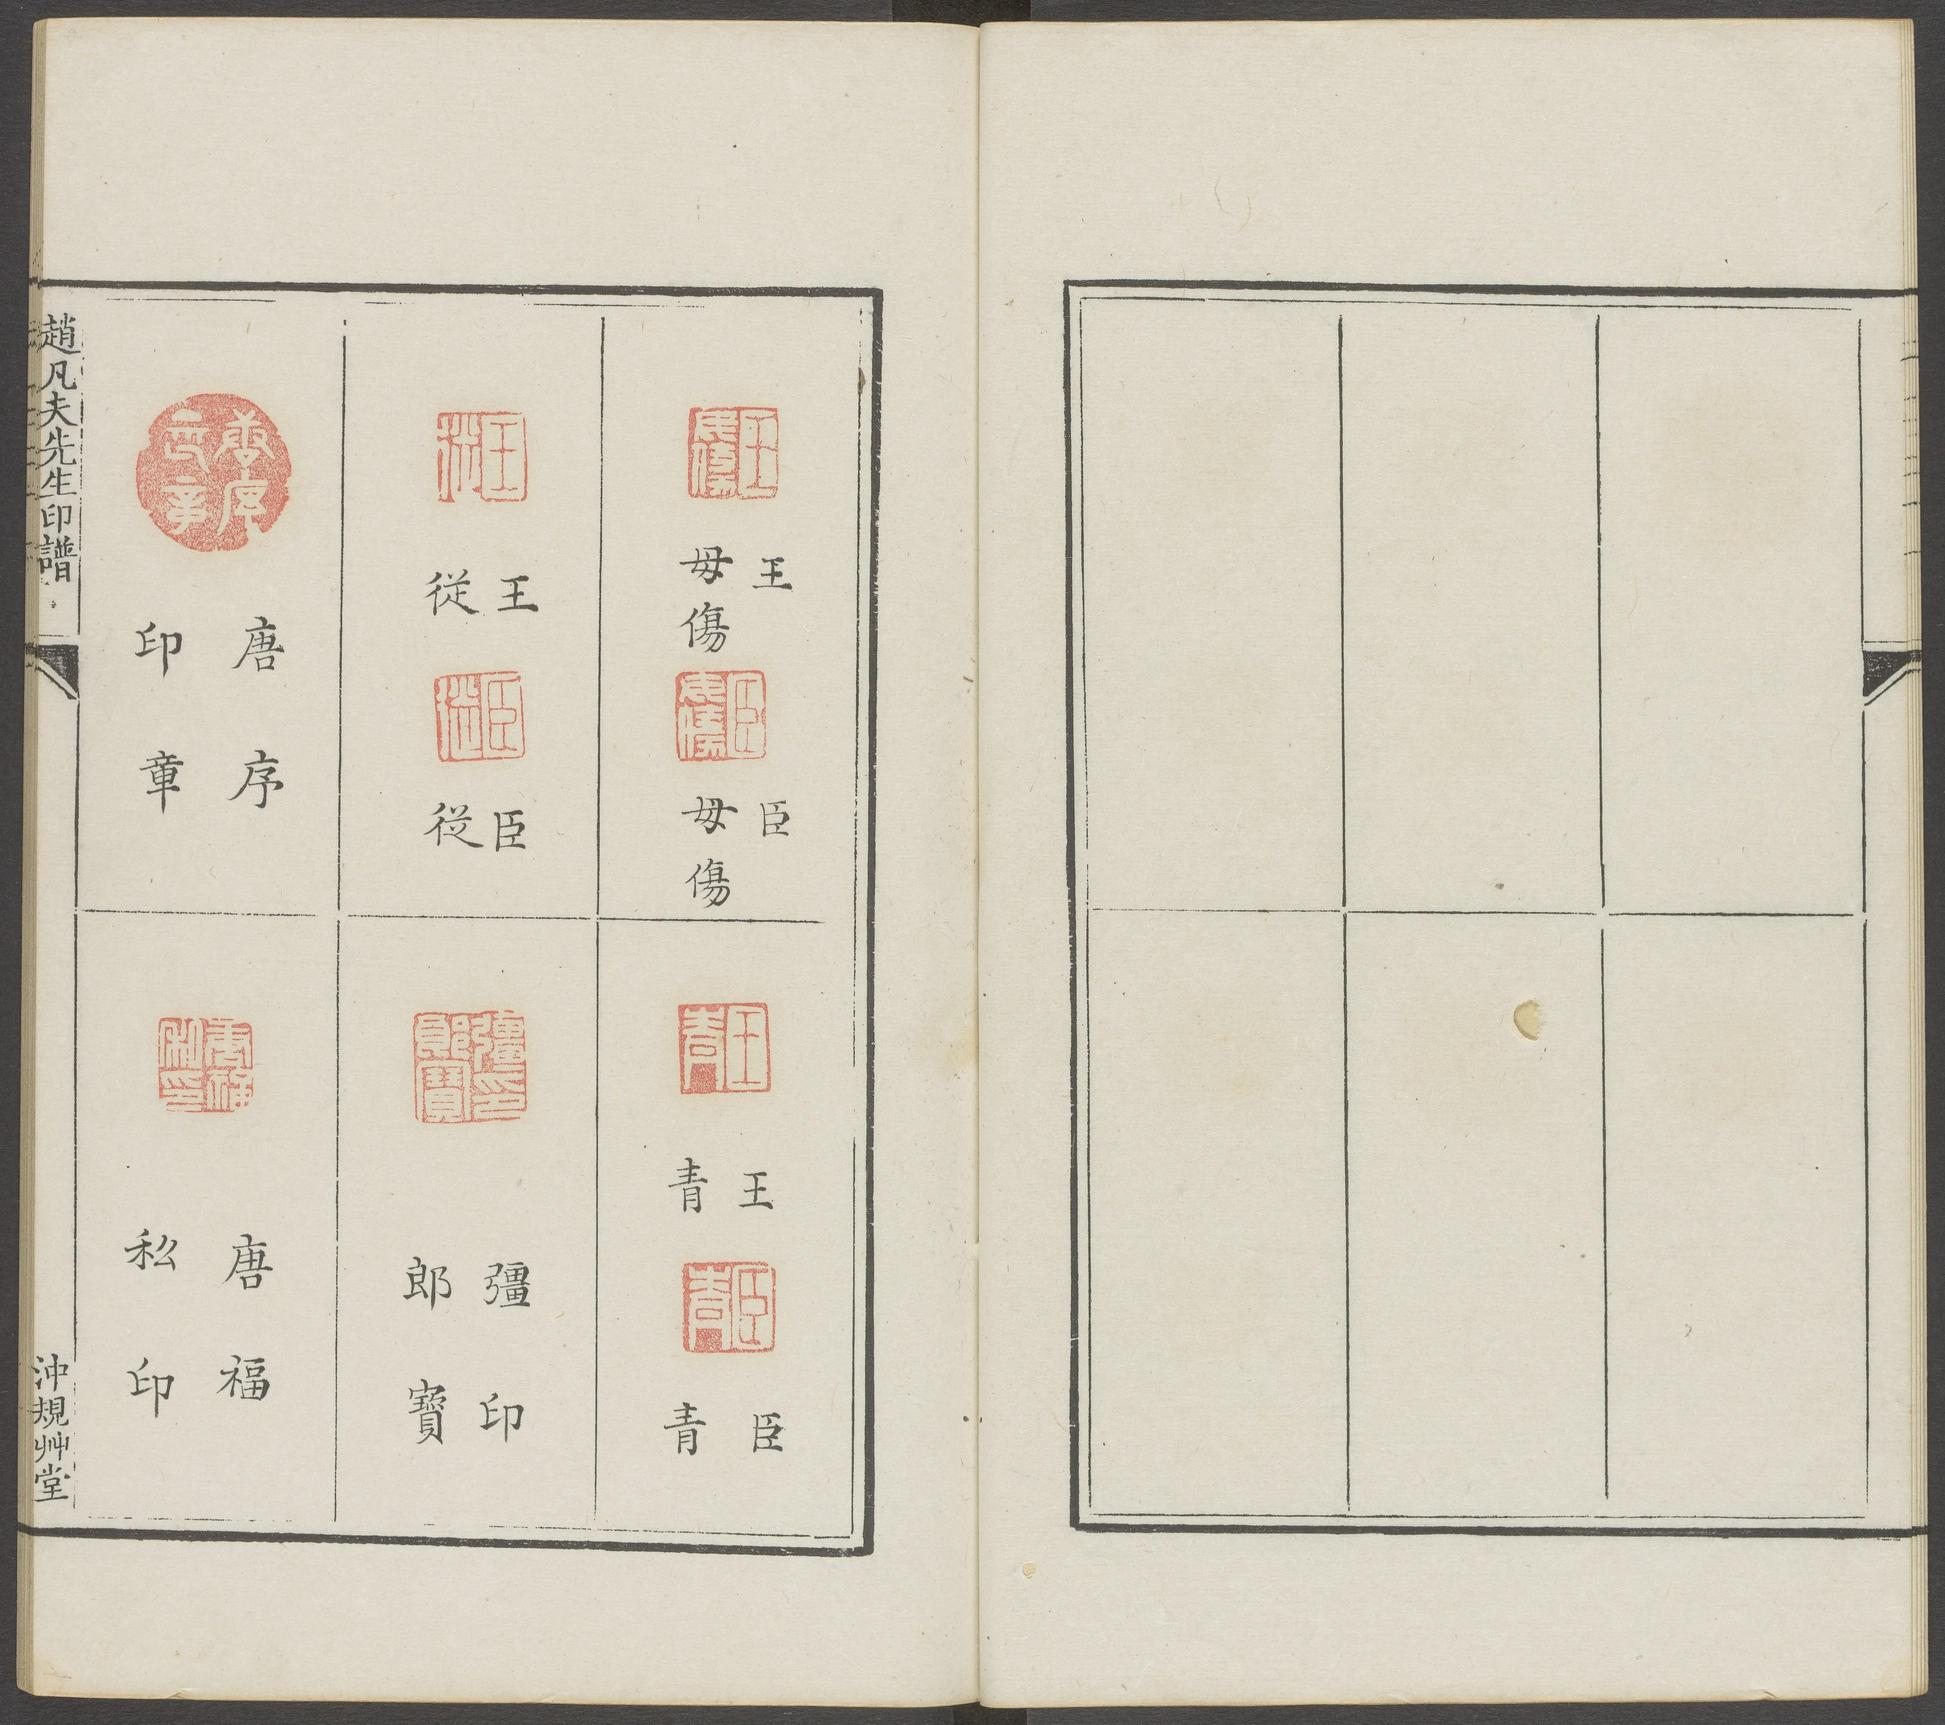 王
毋傷
臣
毋傷
王
青
臣
青
王
從
臣
從
彊印
郎寶
唐序
印章
唐福
私印
趙凡夫先生印譜
沖規艸堂